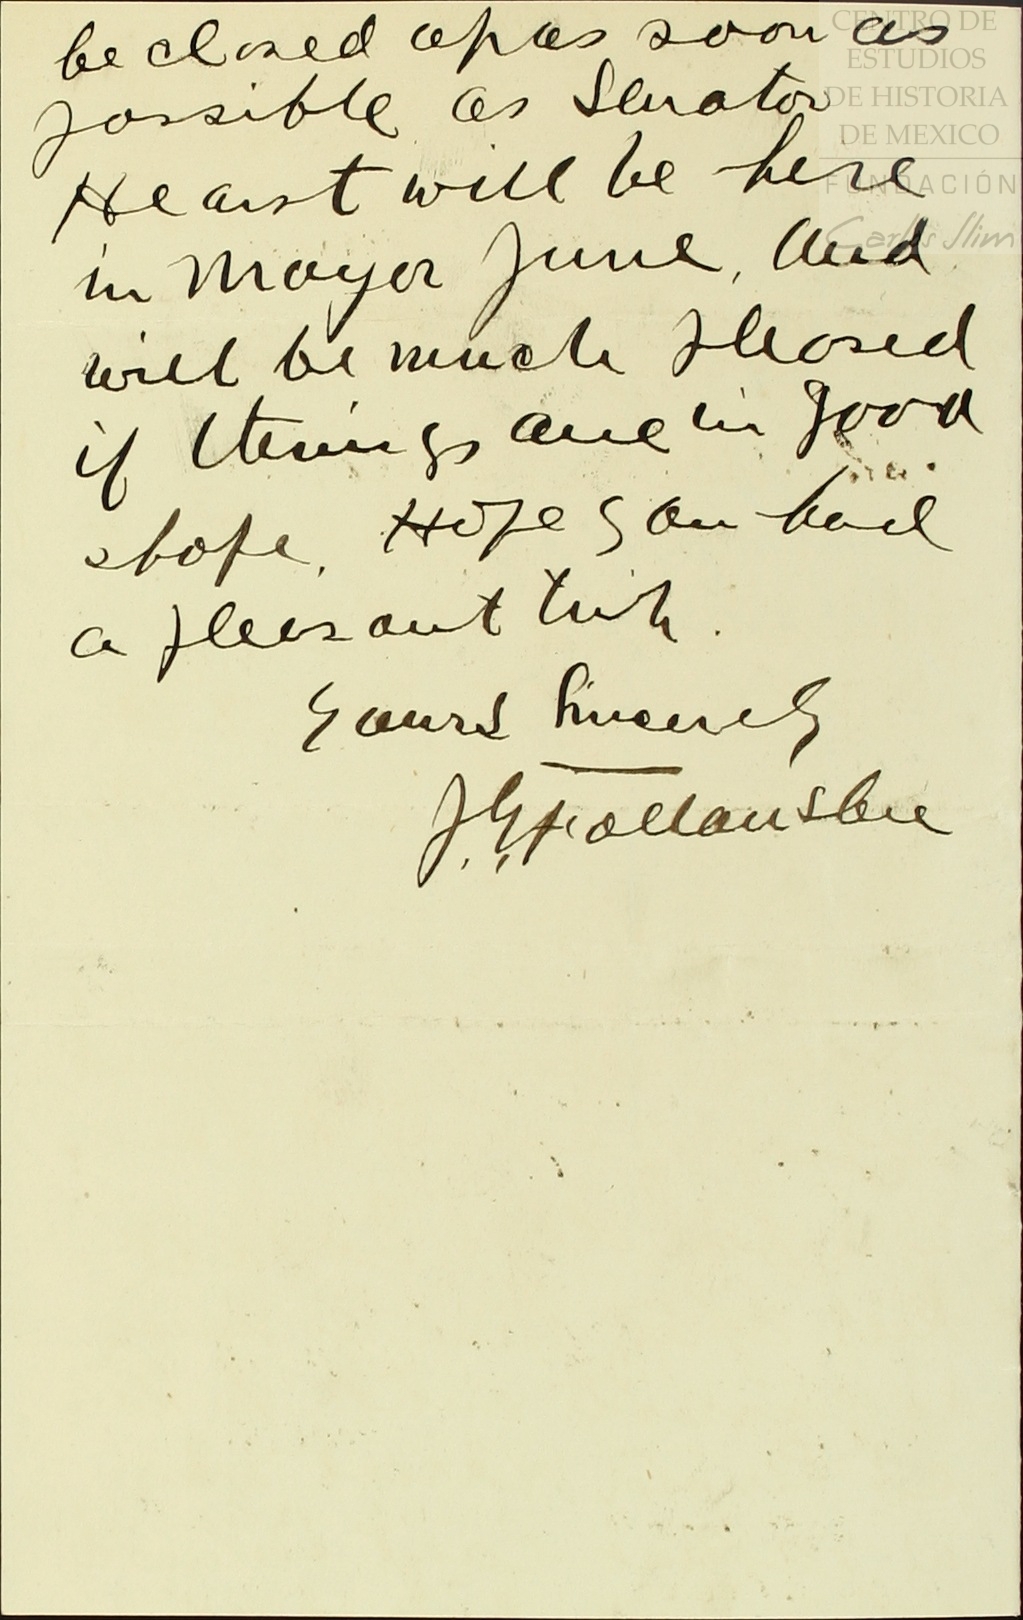 be closed up as soon as
possible as Senator
Hearst will be here
in May or June, and
will be much pleased
if things are in good
shape. Hope you had
a pleasant trip.
Yours Sincerely
J. G. Follansbee
CENTRO DE
ESTUDIOS
DE HISTORIA
DE MEXICO
FUNDACIÓN
Carlos Slim